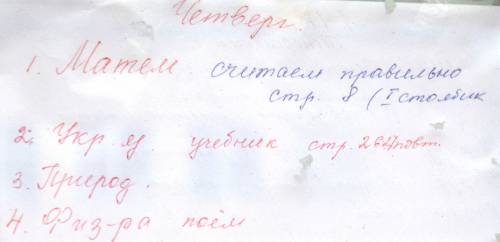 Четверг.
1. Матем считаем правильно
стр. 8 (I столбик
2. Укр. яз. учебник стр. повт.
3. Природ.
4. Физ-ра поём